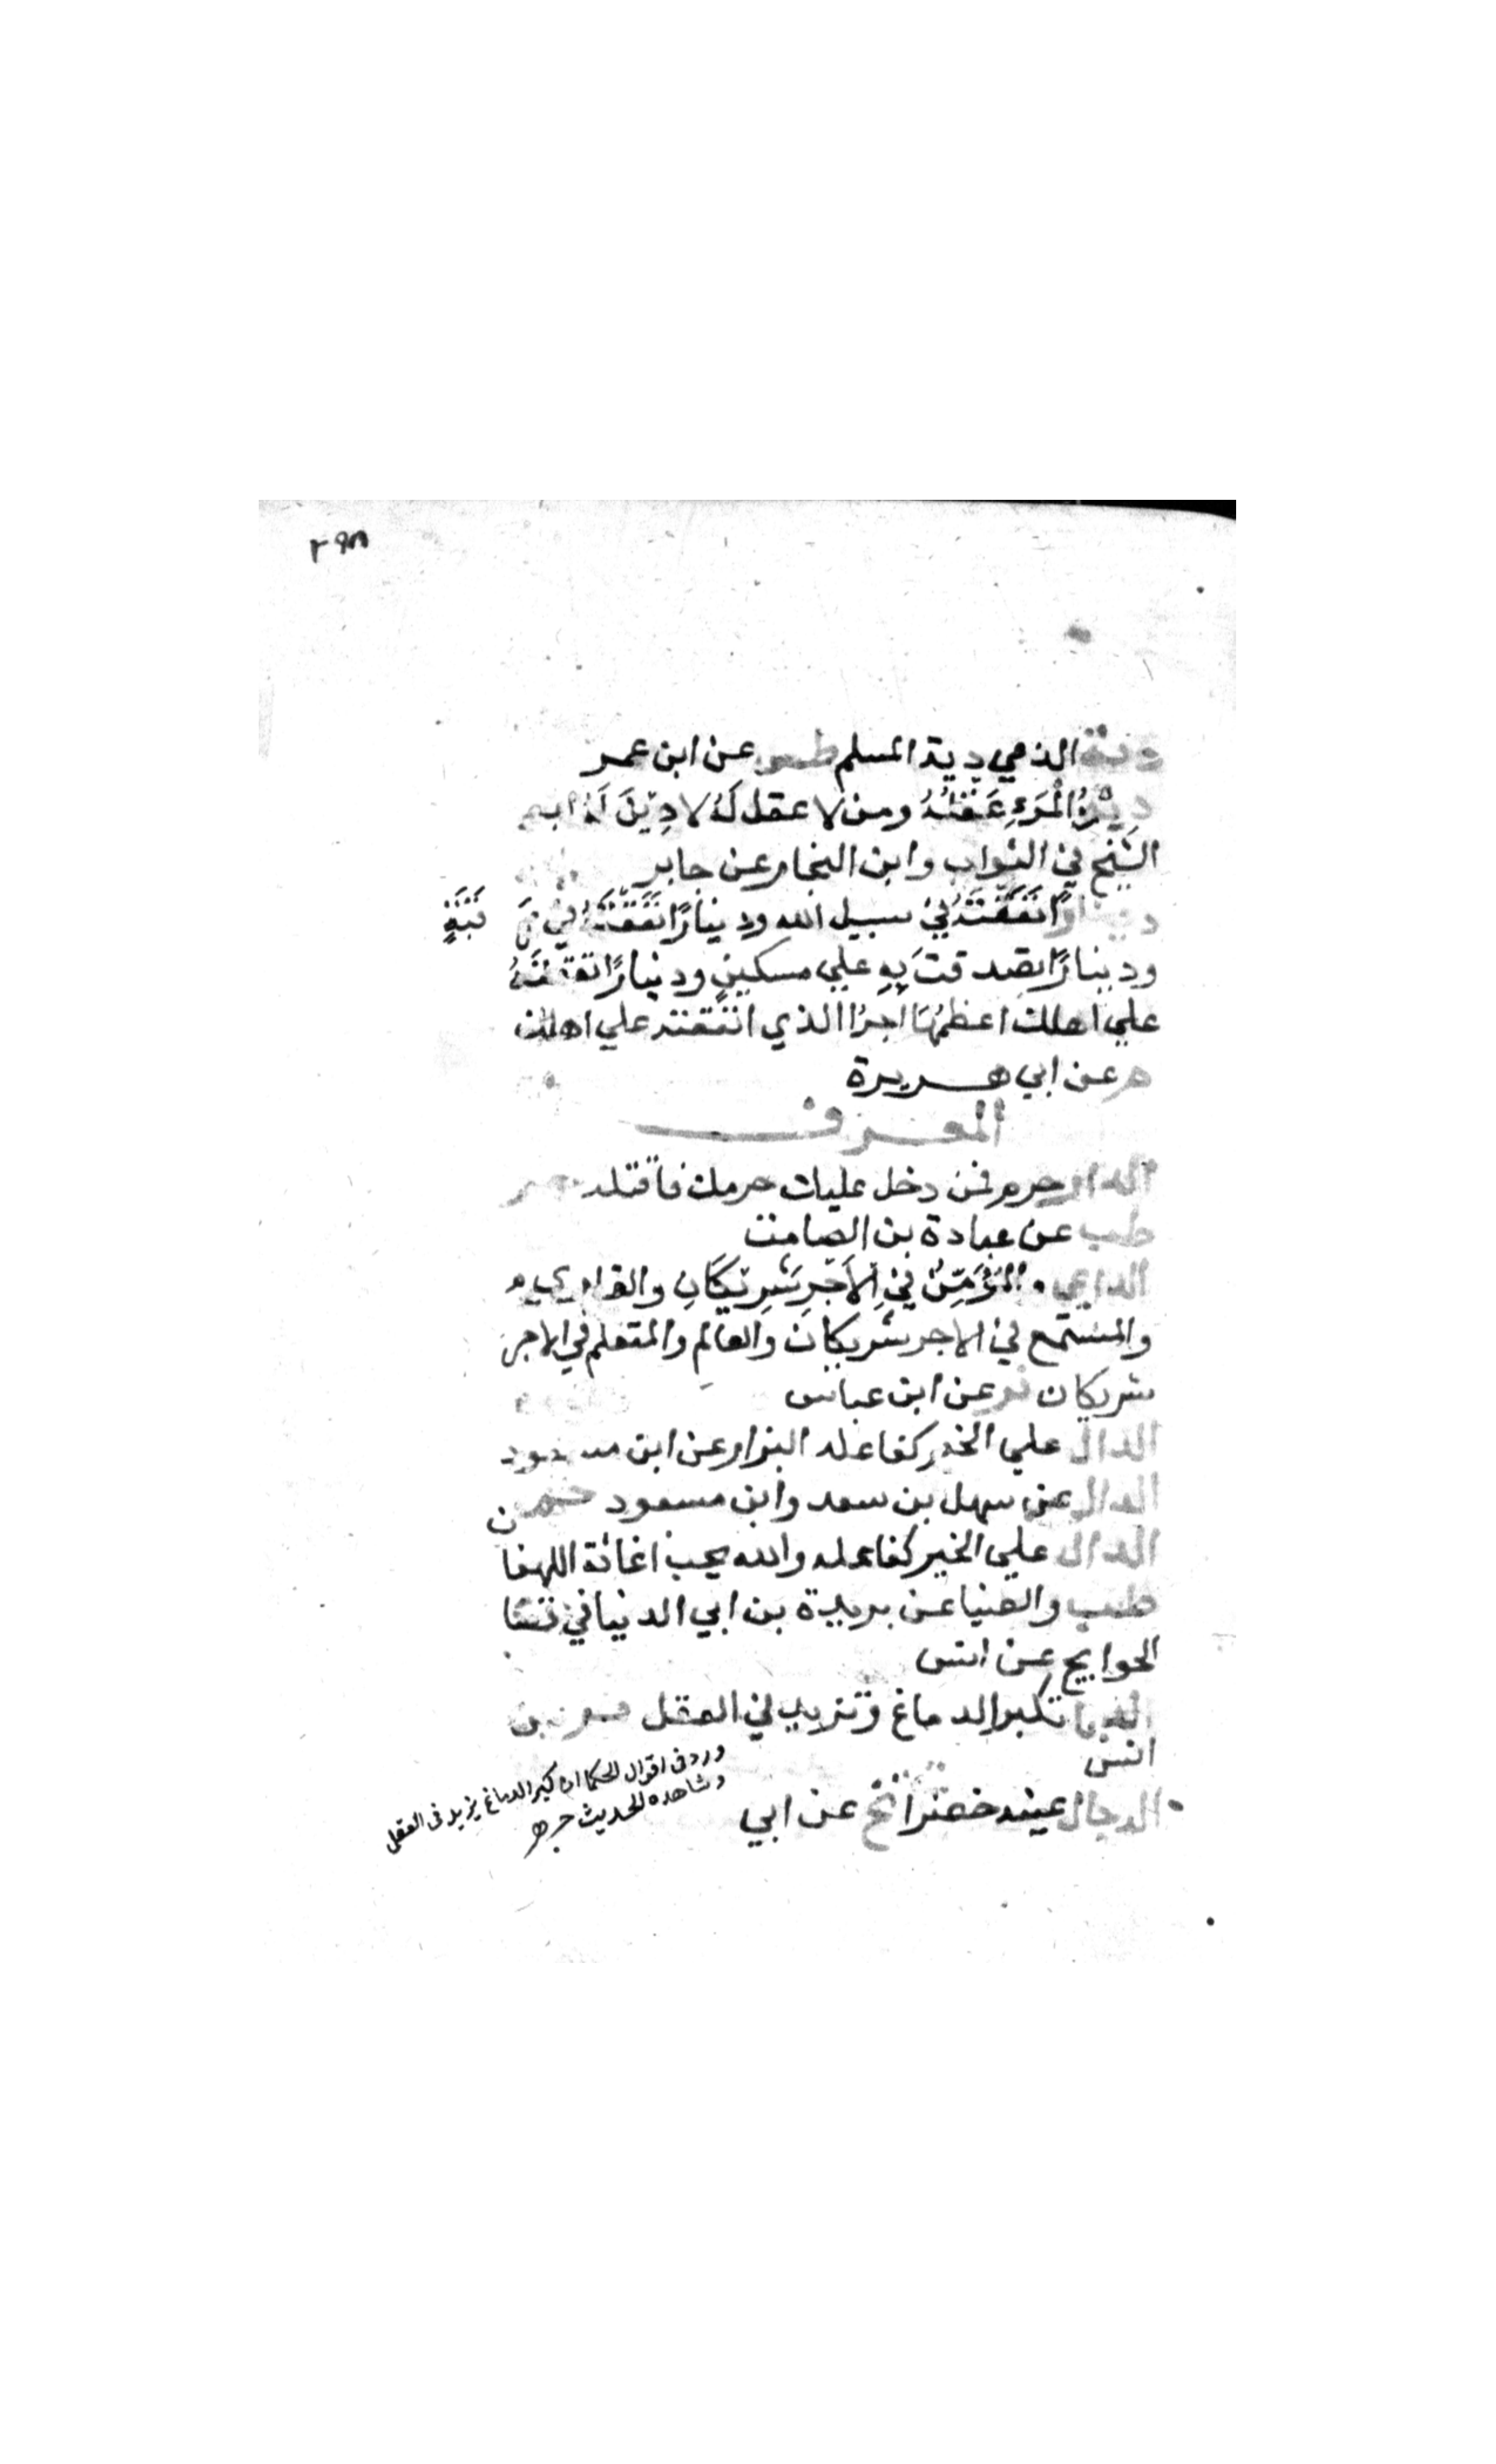 ٢٩٨
دية الذمي دية المسلم طس عن ابن عمر
دِينُ المَرْءِ عَقْلُهُ ومن لا عقل لَهُ لا دِيْنَ لَهُ ابو
الشيخ في الثواب وابن النجار عن جابر
دينارًا نَفَقْتَهُ في سبيل الله ودينارًا نَفَقْتَهُ في رَقَبَةٍ
ودينارًا تصدقتَ بِهِ علي مسكينٍ ودينارًا نفقتَهُ
علي اهلك اعظمُهَا اجرًا الذي انفقته علي اهلك
م عن ابي هريرة
المعرف
الدار حرم فمن دخل عليك حرمك فاقتله حم
طب عن عبادة بن الصامت
الداعي والمُؤَمِّنُ فِي الأَجْرِ شَرِيْكَانِ والقاري
والمستمع في الاجر شريكان والعالم والمتعلم في الاجر
شريكان فر عن ابن عباس
الدال علي الخير كفاعله البزار عن ابن مسعود
الدال عن سهل بن سعد وابن مسعود
الدال علي الخير كفاعله والله يحب اغاثة اللهفا ن
طب والضيا عن بريدة بن ابي الدنيا في قضا
الحوايج عن انس
الدبا تكبر الدماغ وتزيد في العقل فر عن
انس
الدجال عينه خضرا تخ عن ابي
ورد في اقوال الحكما ان كبر الدماغ يزيد في العقل
وشاهده الحديث